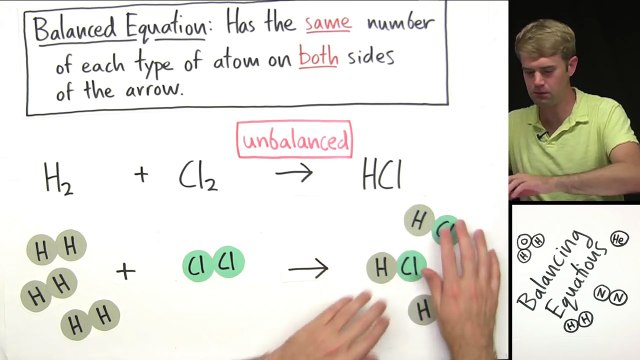 Balanced Equation: Has the same number
of each type of atom on both sides
of the arrow.
unbalanced
H2 + Cl2 → HCl
H H
H H
H H
+
Cl Cl
→
H Cl
H Cl
H
Balancing
Equations
O
H H
He
N N
H H